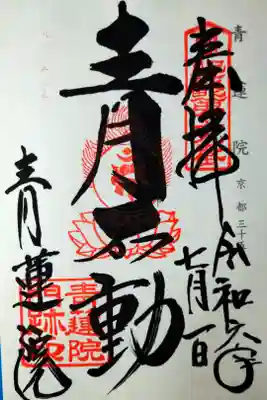 奉拝
令和六年
七月一日
青不動
青蓮院
青蓮院
京都三十三
青蓮院
門跡印